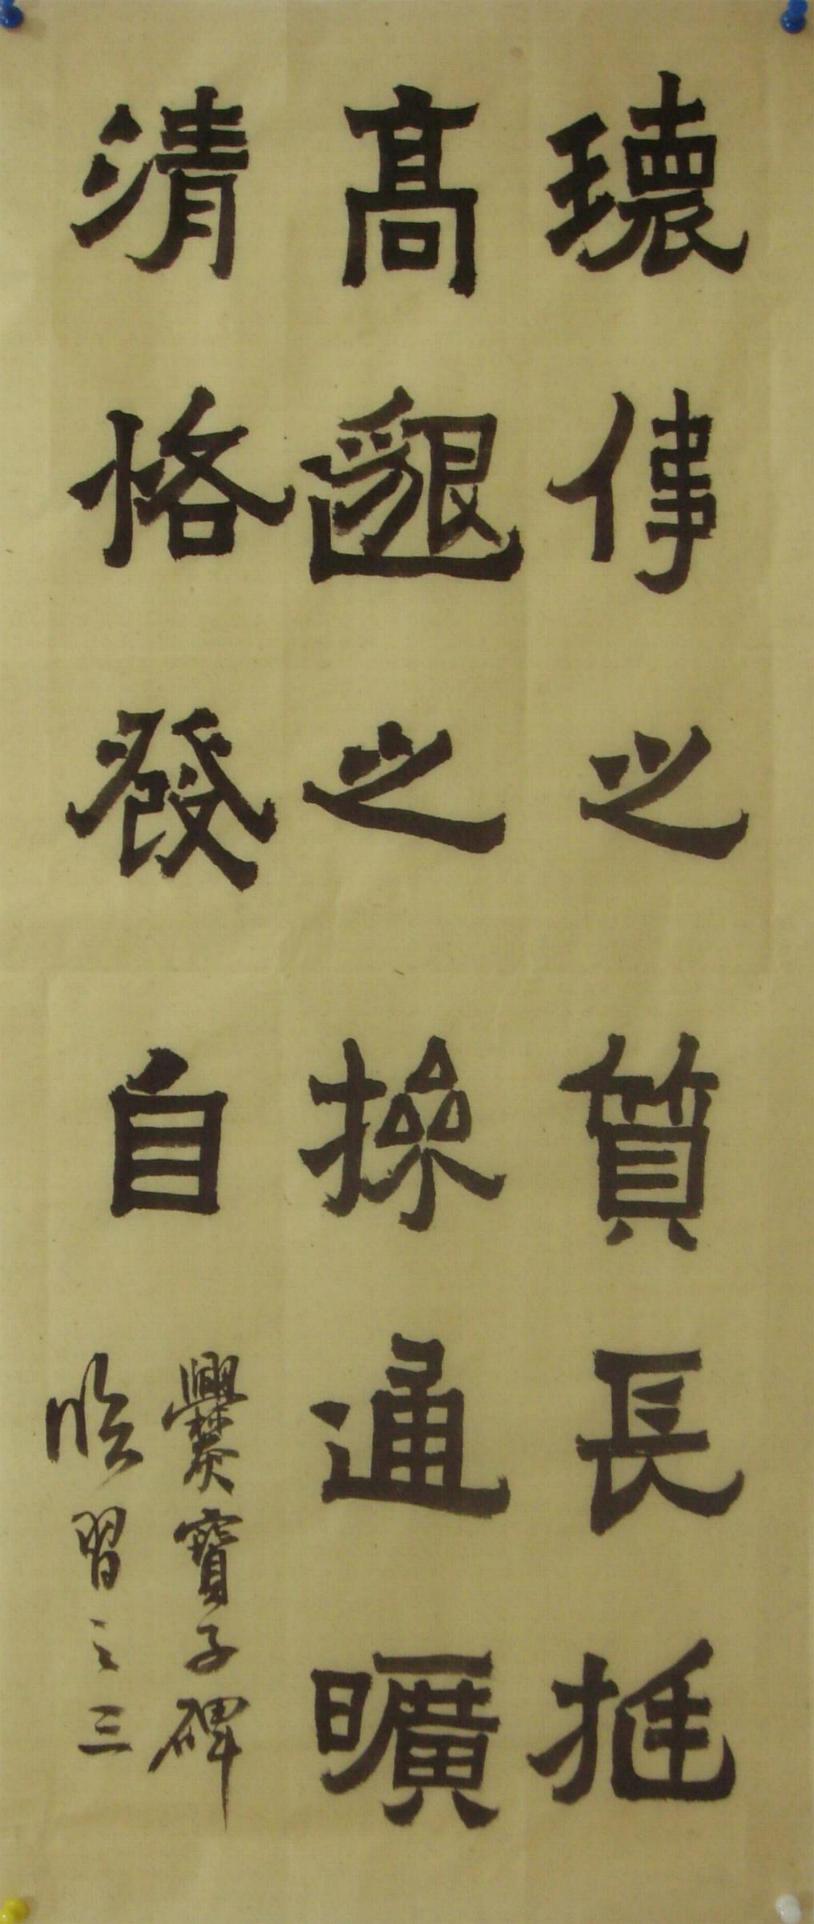 瓌偉之質長挺
高邈之操通曠
清恪發自
爨寶子碑
臨習之三